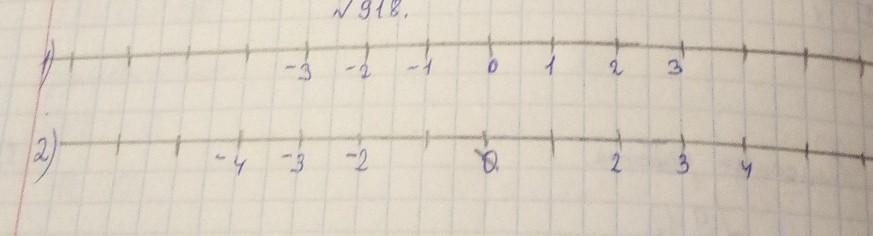 №918.
1) -3 -2 -1 0 1 2 3
2) -4 -3 -2 0 2 3 4